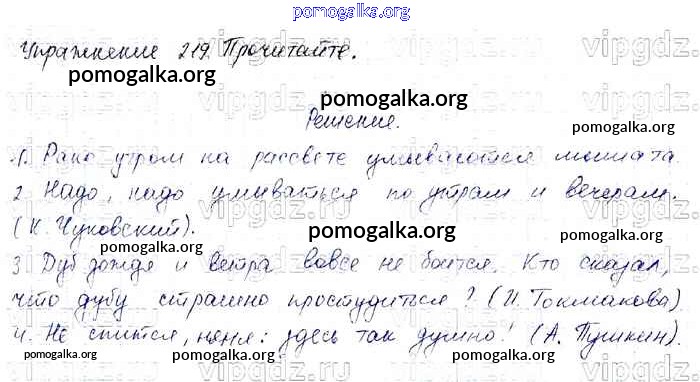 pomogalka.org
Упражнение 219. Прочитайте.
pomogalka.org
pomogalka.org
Решение.
pomogalka.org
1. Рано утром на рассвете умываются мышата
2 Надо, надо умываться по утрам и вечерам.
(К. Чуковский).
pomogalka.org
pomogalka.org
pomogalka.org
3 Дуб дождя и ветра вовсе не боится. Кто сказал,
что дубу страшно простудиться? (И. Токмакова)
4. Не спится, няня: здесь так душно! (А. Пушкин).
pomogalka.org
pomogalka.org
pomogalka.org
vipgdz.ru